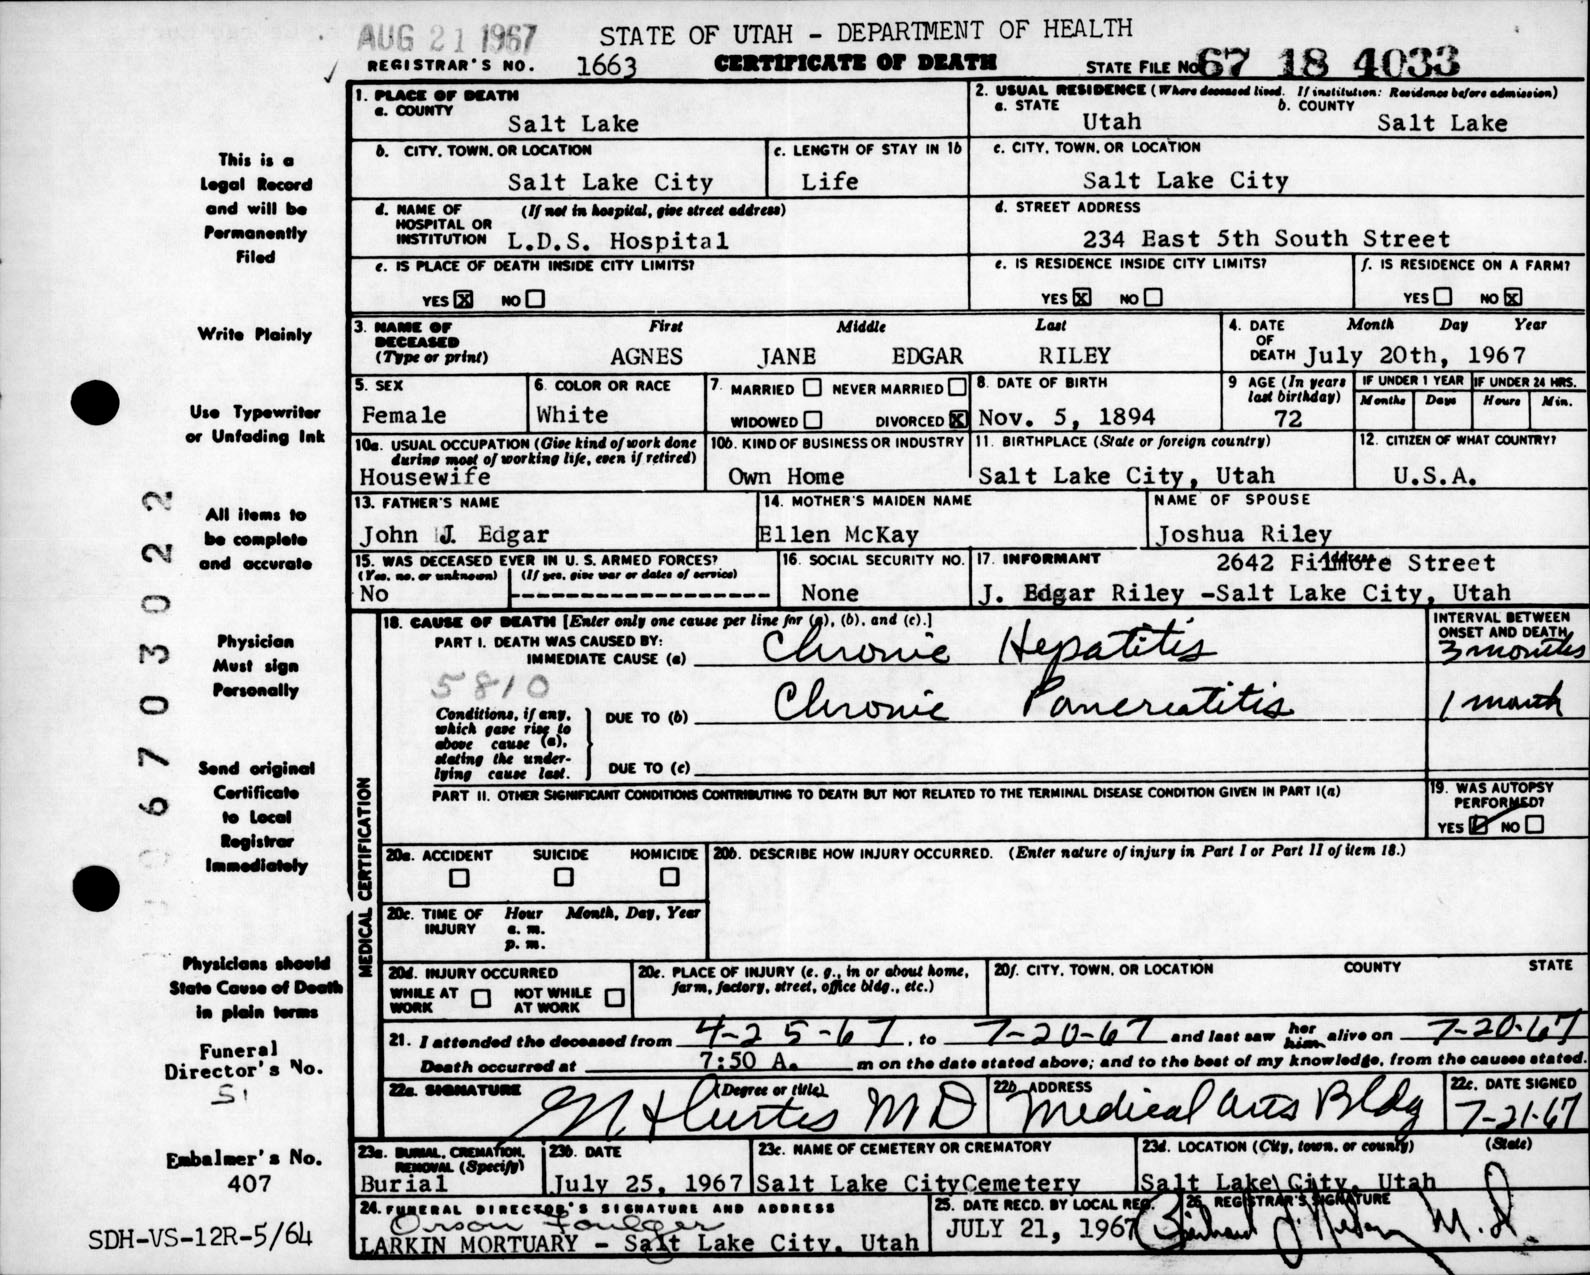 AUG 21 1967
STATE OF UTAH - DEPARTMENT OF HEALTH
REGISTRAR'S NO. 1663
CERTIFICATE OF DEATH
STATE FILE NO. 67 18 4033
1. PLACE OF DEATH
a. COUNTY
Salt Lake
2. USUAL RESIDENCE (Where deceased lived. If institution: Residence before admission)
a. STATE
Utah
b. COUNTY
Salt Lake
b. CITY, TOWN, OR LOCATION
Salt Lake City
c. LENGTH OF STAY IN 1b
Life
c. CITY, TOWN, OR LOCATION
Salt Lake City
d. NAME OF HOSPITAL OR INSTITUTION (If not in hospital, give street address)
L.D.S. Hospital
d. STREET ADDRESS
234 East 5th South Street
e. IS PLACE OF DEATH INSIDE CITY LIMITS?
YES X NO
e. IS RESIDENCE INSIDE CITY LIMITS?
YES X NO
f. IS RESIDENCE ON A FARM?
YES NO X
3. NAME OF DECEASED (Type or print)
First Middle Last
AGNES JANE EDGAR RILEY
4. DATE OF DEATH
Month Day Year
July 20th, 1967
5. SEX
Female
6. COLOR OR RACE
White
7. MARRIED NEVER MARRIED
WIDOWED DIVORCED X
8. DATE OF BIRTH
Nov. 5, 1894
9 AGE (In years last birthday)
72
IF UNDER 1 YEAR
Months Days
IF UNDER 24 HRS.
Hours Min.
10a. USUAL OCCUPATION (Give kind of work done during most of working life, even if retired)
Housewife
10b. KIND OF BUSINESS OR INDUSTRY
Own Home
11. BIRTHPLACE (State or foreign country)
Salt Lake City, Utah
12. CITIZEN OF WHAT COUNTRY?
U.S.A.
13. FATHER'S NAME
John J. Edgar
14. MOTHER'S MAIDEN NAME
Ellen McKay
NAME OF SPOUSE
Joshua Riley
15. WAS DECEASED EVER IN U. S. ARMED FORCES?
(Yes, no, or unknown) (If yes, give war or dates of service)
No
16. SOCIAL SECURITY NO.
None
17. INFORMANT Address
2642 Filmore Street
J. Edgar Riley -Salt Lake City, Utah
MEDICAL CERTIFICATION
18. CAUSE OF DEATH [Enter only one cause per line for (a), (b), and (c).]
PART I. DEATH WAS CAUSED BY:
IMMEDIATE CAUSE (a) Chronic Hepatitis
INTERVAL BETWEEN ONSET AND DEATH
3 months
5810
Conditions, if any, which gave rise to above cause (a), stating the underlying cause last.
DUE TO (b) Chronic Pancreatitis
1 month
DUE TO (c)
PART II. OTHER SIGNIFICANT CONDITIONS CONTRIBUTING TO DEATH BUT NOT RELATED TO THE TERMINAL DISEASE CONDITION GIVEN IN PART I(a)
19. WAS AUTOPSY PERFORMED?
YES NO
20a. ACCIDENT SUICIDE HOMICIDE
20b. DESCRIBE HOW INJURY OCCURRED. (Enter nature of injury in Part I or Part II of item 18.)
20c. TIME OF INJURY Hour Month, Day, Year
a. m.
p. m.
20d. INJURY OCCURRED
WHILE AT WORK NOT WHILE AT WORK
20e. PLACE OF INJURY (e. g., in or about home, farm, factory, street, office bldg., etc.)
20f. CITY, TOWN, OR LOCATION COUNTY STATE
21. I attended the deceased from 4-25-67, to 7-20-67 and last saw her him alive on 7-20-67
Death occurred at 7:50 A. m on the date stated above; and to the best of my knowledge, from the causes stated.
22a. SIGNATURE (Degree or title)
Curtis MD
22b ADDRESS
Medical Arts Bldg
22c. DATE SIGNED
7-21-67
23a. BURIAL, CREMATION, REMOVAL (Specify)
Burial
23b. DATE
July 25, 1967
23c. NAME OF CEMETERY OR CREMATORY
Salt Lake CityCemetery
23d. LOCATION (City, town, or county) (State)
Salt Lake City, Utah
24. FUNERAL DIRECTOR'S SIGNATURE AND ADDRESS
Orson Foulger
LARKIN MORTUARY - Salt Lake City, Utah
25. DATE RECD. BY LOCAL REG.
JULY 21, 1967
26. REGISTRAR'S SIGNATURE
M.D.
This is a
Legal Record
and will be
Permanently
Filed
Write Plainly
Use Typewriter
or Unfading Ink
All items to
be complete
and accurate
Physician
Must sign
Personally
Send original
Certificate
to Local
Registrar
Immediately
Physicians should
State Cause of Death
in plain terms
Funeral
Director's No.
51
Embalmer's No.
407
SDH-VS-12R-5/64
6703022